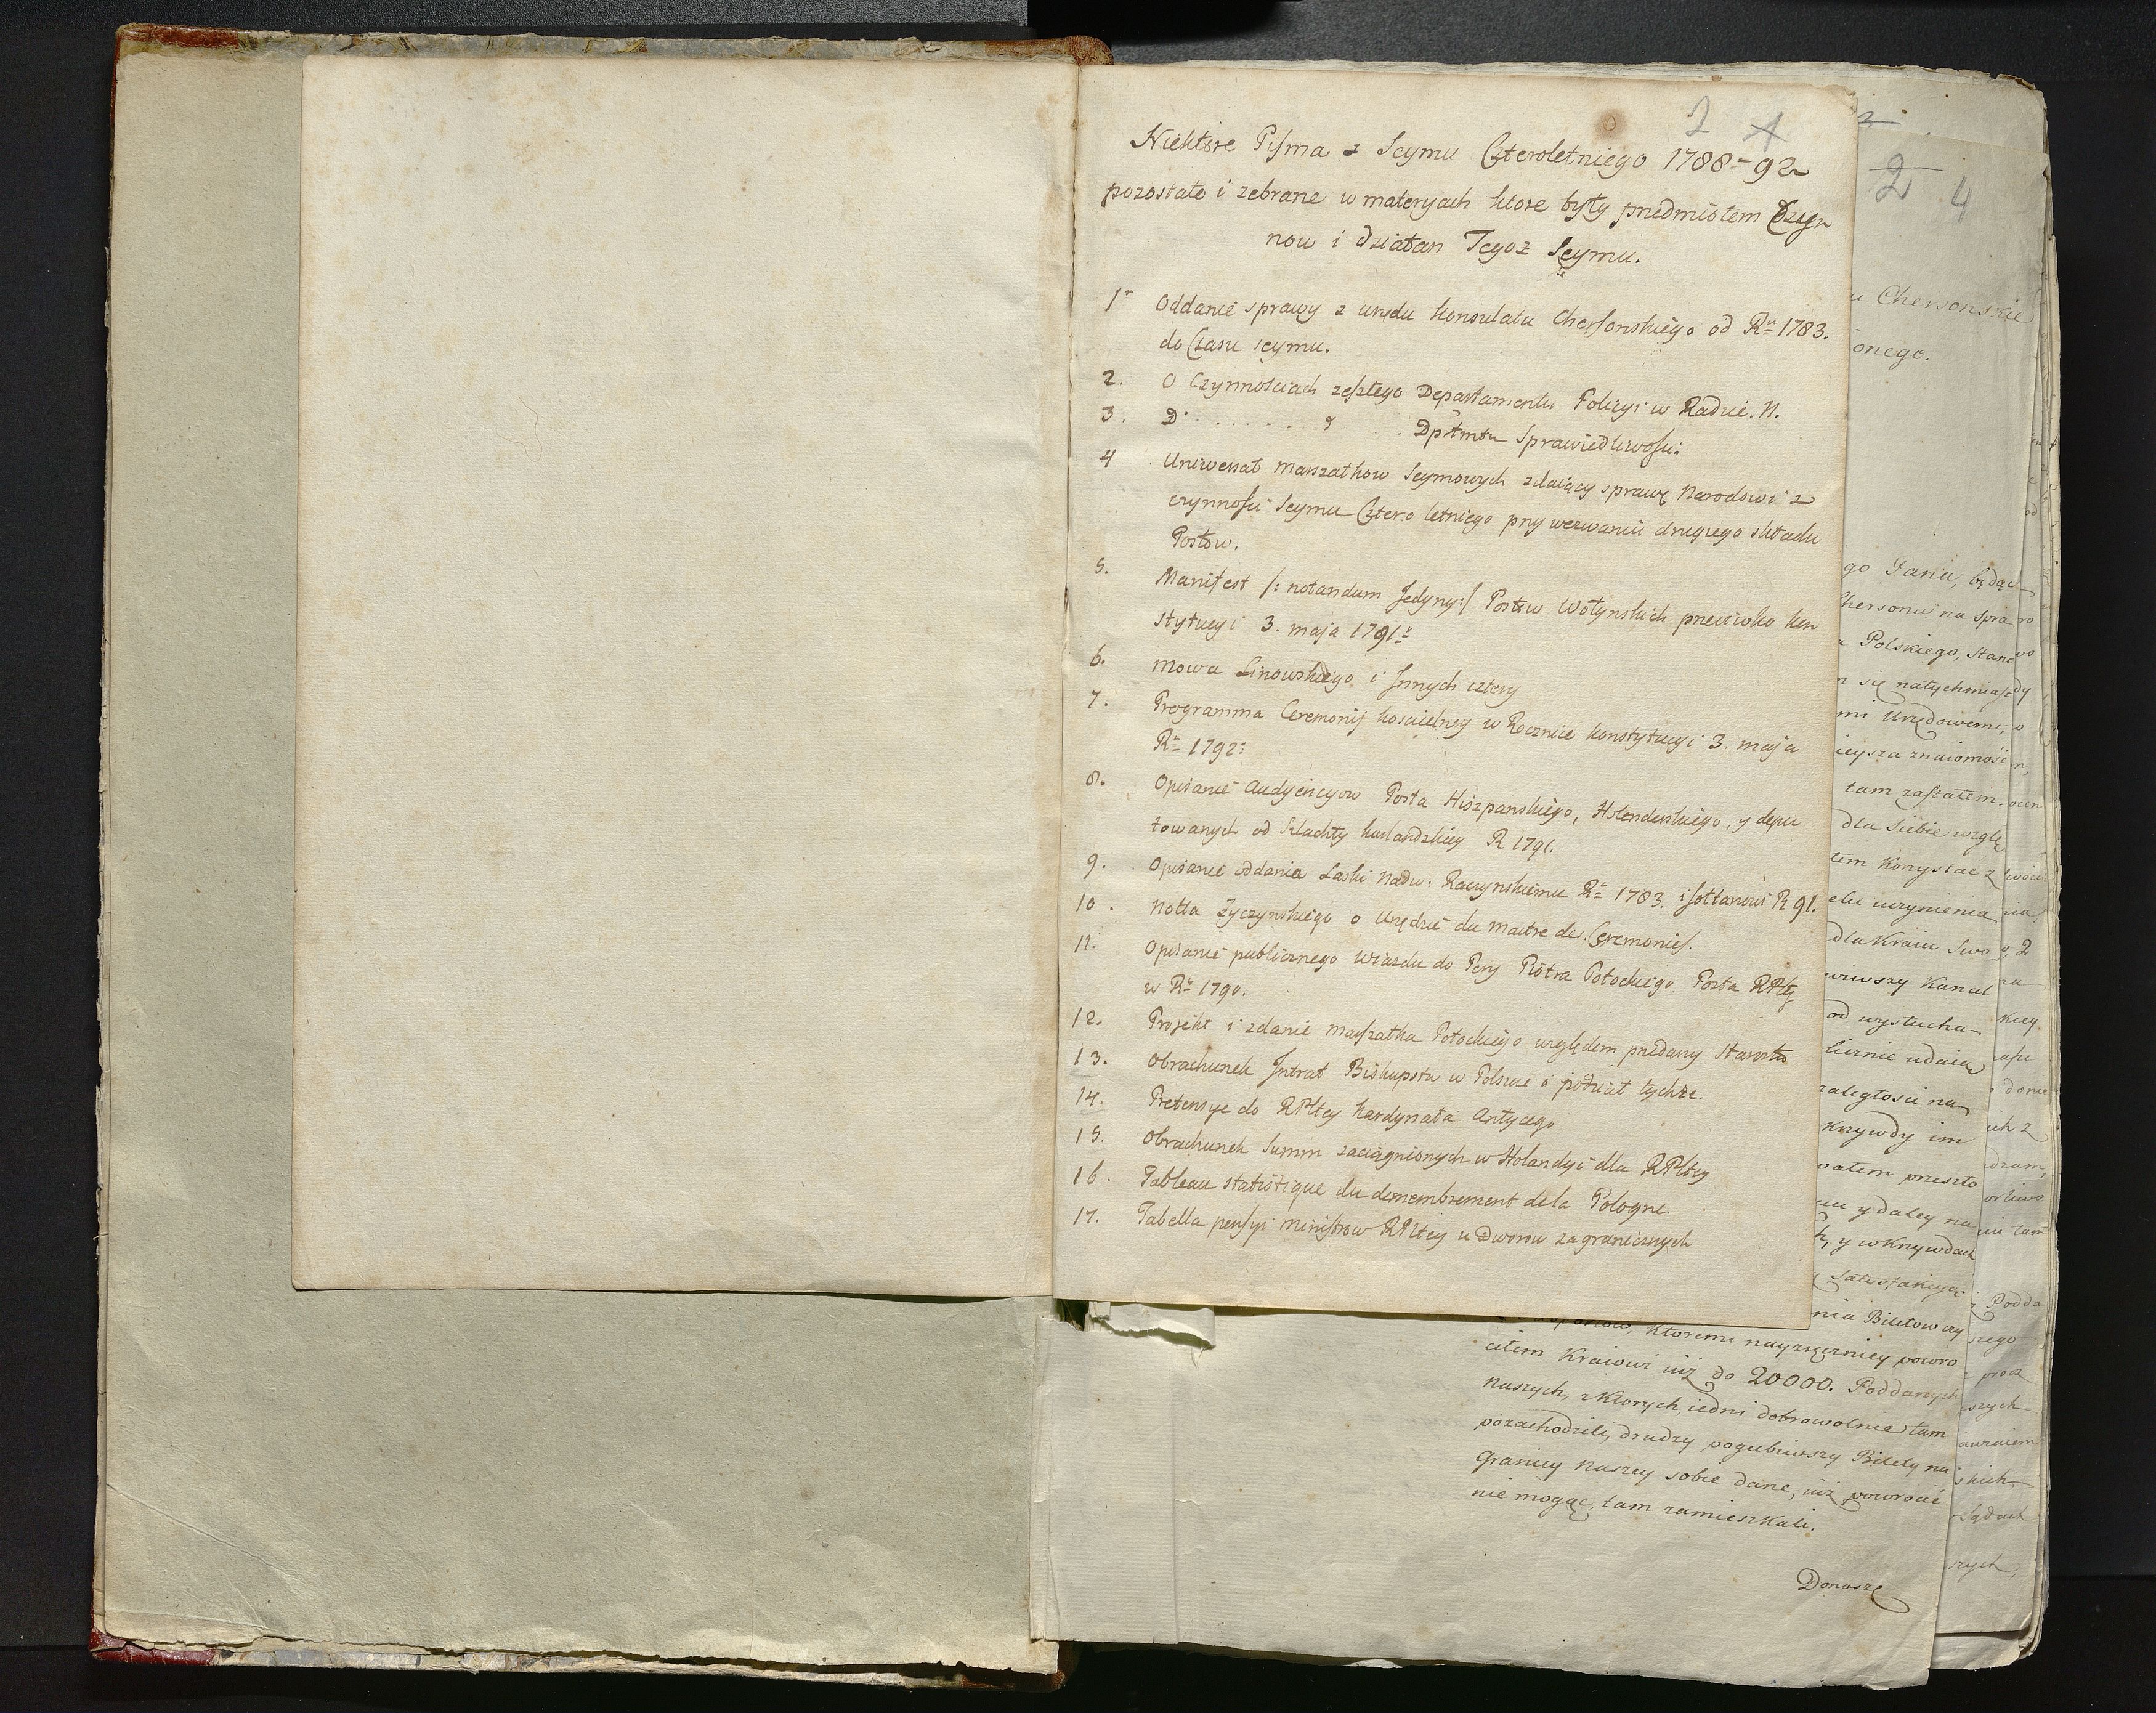 2 1
Niektore Pisma z Seymu Czteroletniego 1788-92
pozostałe i zebrane w materyach ktore były przedmiotem Czyn
now i działan Tegoż Seymu.
1 Oddanie sprawy z urzędu konsulatu Chersonskiego od Ru 1783.
do Czasu seymu.
2. O Czynnościach zeszłego Departamentu Policyi w Radzie. N.
3. D° . . . . . . Dptmtu Sprawiedliwosci
4 Uniwersał marszałkow Seymowych zdaiący sprawę Narodowi z
czynnosci Seymu Cztero letniego przy wezwaniu drugiego składu
Posłow.
5. Manifest /: notandum Jedyny :/ Posłow Wołynskich przeciwko kon
stytucyi 3. maja 1791
6. Mowa Linowskiego i Jnnych cztery
7. Programma Ceremonij koscielney w Rocznice konstytucyi 3. maja
Ru 1792
8. Opisanie audyencyow Posła Hiszpanskiego, Holenderskiego, y depu
towanych od Szlachty kurlandzkiey R 1791.
9. Opisanie oddania Laski Nadw: Raczynskiemu Ru 1783. i Sołtanowi R 91.
10. Notta Zyczynskiego o Urzędzie du maitre des Ceremonies.
11. Opisanie publicznego Wiazdu do Pery Piotra Potockiego Posła RPltej
w Ru 1790.
12. Projekt i zdanie marszałka Potockiego względem przedazy Starostw
13. Obrachunek Jntrat Biskupstw w Polszcze i podział tychże.
14. Pretensye do RPltey kardynała Antyczego
15. Obrachunek Summ zaciągnionych w Holandyi dla RPltey
16. Tableau statistique du demembrement de la Pologne
17. Tabella pensyi Ministrow RPltey u Dworow zagranicznych
2 4
u Chersonskie
onego.
go Pana, będąc
Chersonu na spra
a Polskiego, stano
m się natychmiast
mi Urzędowemi,
ieysza znaiomość
tam zastałem.
dla siebie wzglę
tem Korzystać z
elu uczynienia
dla Kraiu Swo
wiwszy Kanał
od wysłucha
licznie udaią
zaległosci na
krzywdy im
wałem przeszło
y daley na
y w Krzywdach
nia Biletow czy
ktoremi nayzręczniey powro
ciłem Kraiowi iuż do 20000. Poddanych
naszych, z ktorych, iedni dobrowolnie tam
pozachodzili, drudzy pogubiwszy Bilety na
granicy naszey sobie dane, iuż powrocić
nie mogąc, tam zamieszkali.
Donoszę